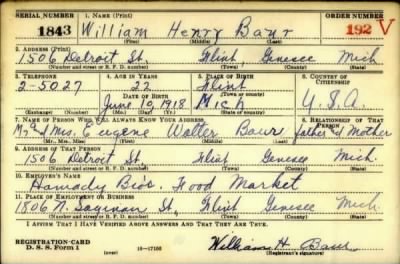 SERIAL NUMBER 1. NAME (Print) ORDER NUMBER
1843 William Henry Baur 192 V
(First) (Middle) (Last)
2. ADDRESS (Print)
1506 Detroit St. Flint Genesee Mich
(Number and street or R. F. D. number) (Town) (County) (State)
3. TELEPHONE 4. AGE IN YEARS 5. PLACE OF BIRTH 6. COUNTRY OF CITIZENSHIP
2-5027 22 Flint
DATE OF BIRTH (Town or county)
June 10, 1918 Mich U.S.A.
(Exchange) (Number) (Mo.) (Day) (Yr.) (State or country)
7. NAME OF PERSON WHO WILL ALWAYS KNOW YOUR ADDRESS 8. RELATIONSHIP OF THAT PERSON
Mr & Mrs. Eugene Walter Baur Father & Mother
(Mr., Mrs., Miss) (First) (Middle) (Last)
9. ADDRESS OF THAT PERSON
1506 Detroit St. Flint Genesee Mich.
(Number and street or R. F. D. number) (Town) (County) (State)
10. EMPLOYER'S NAME
Hamady Bros. Food Market
11. PLACE OF EMPLOYMENT OR BUSINESS
1806 N. St. Flint Genesee Mich.
(Number and street or R. F. D. number) (Town) (County) (State)
I AFFIRM THAT I HAVE VERIFIED ABOVE ANSWERS AND THAT THEY ARE TRUE.
REGISTRATION CARD
D. S. S. Form 1 16-17105 William H. Baur
(Registrant's signature)